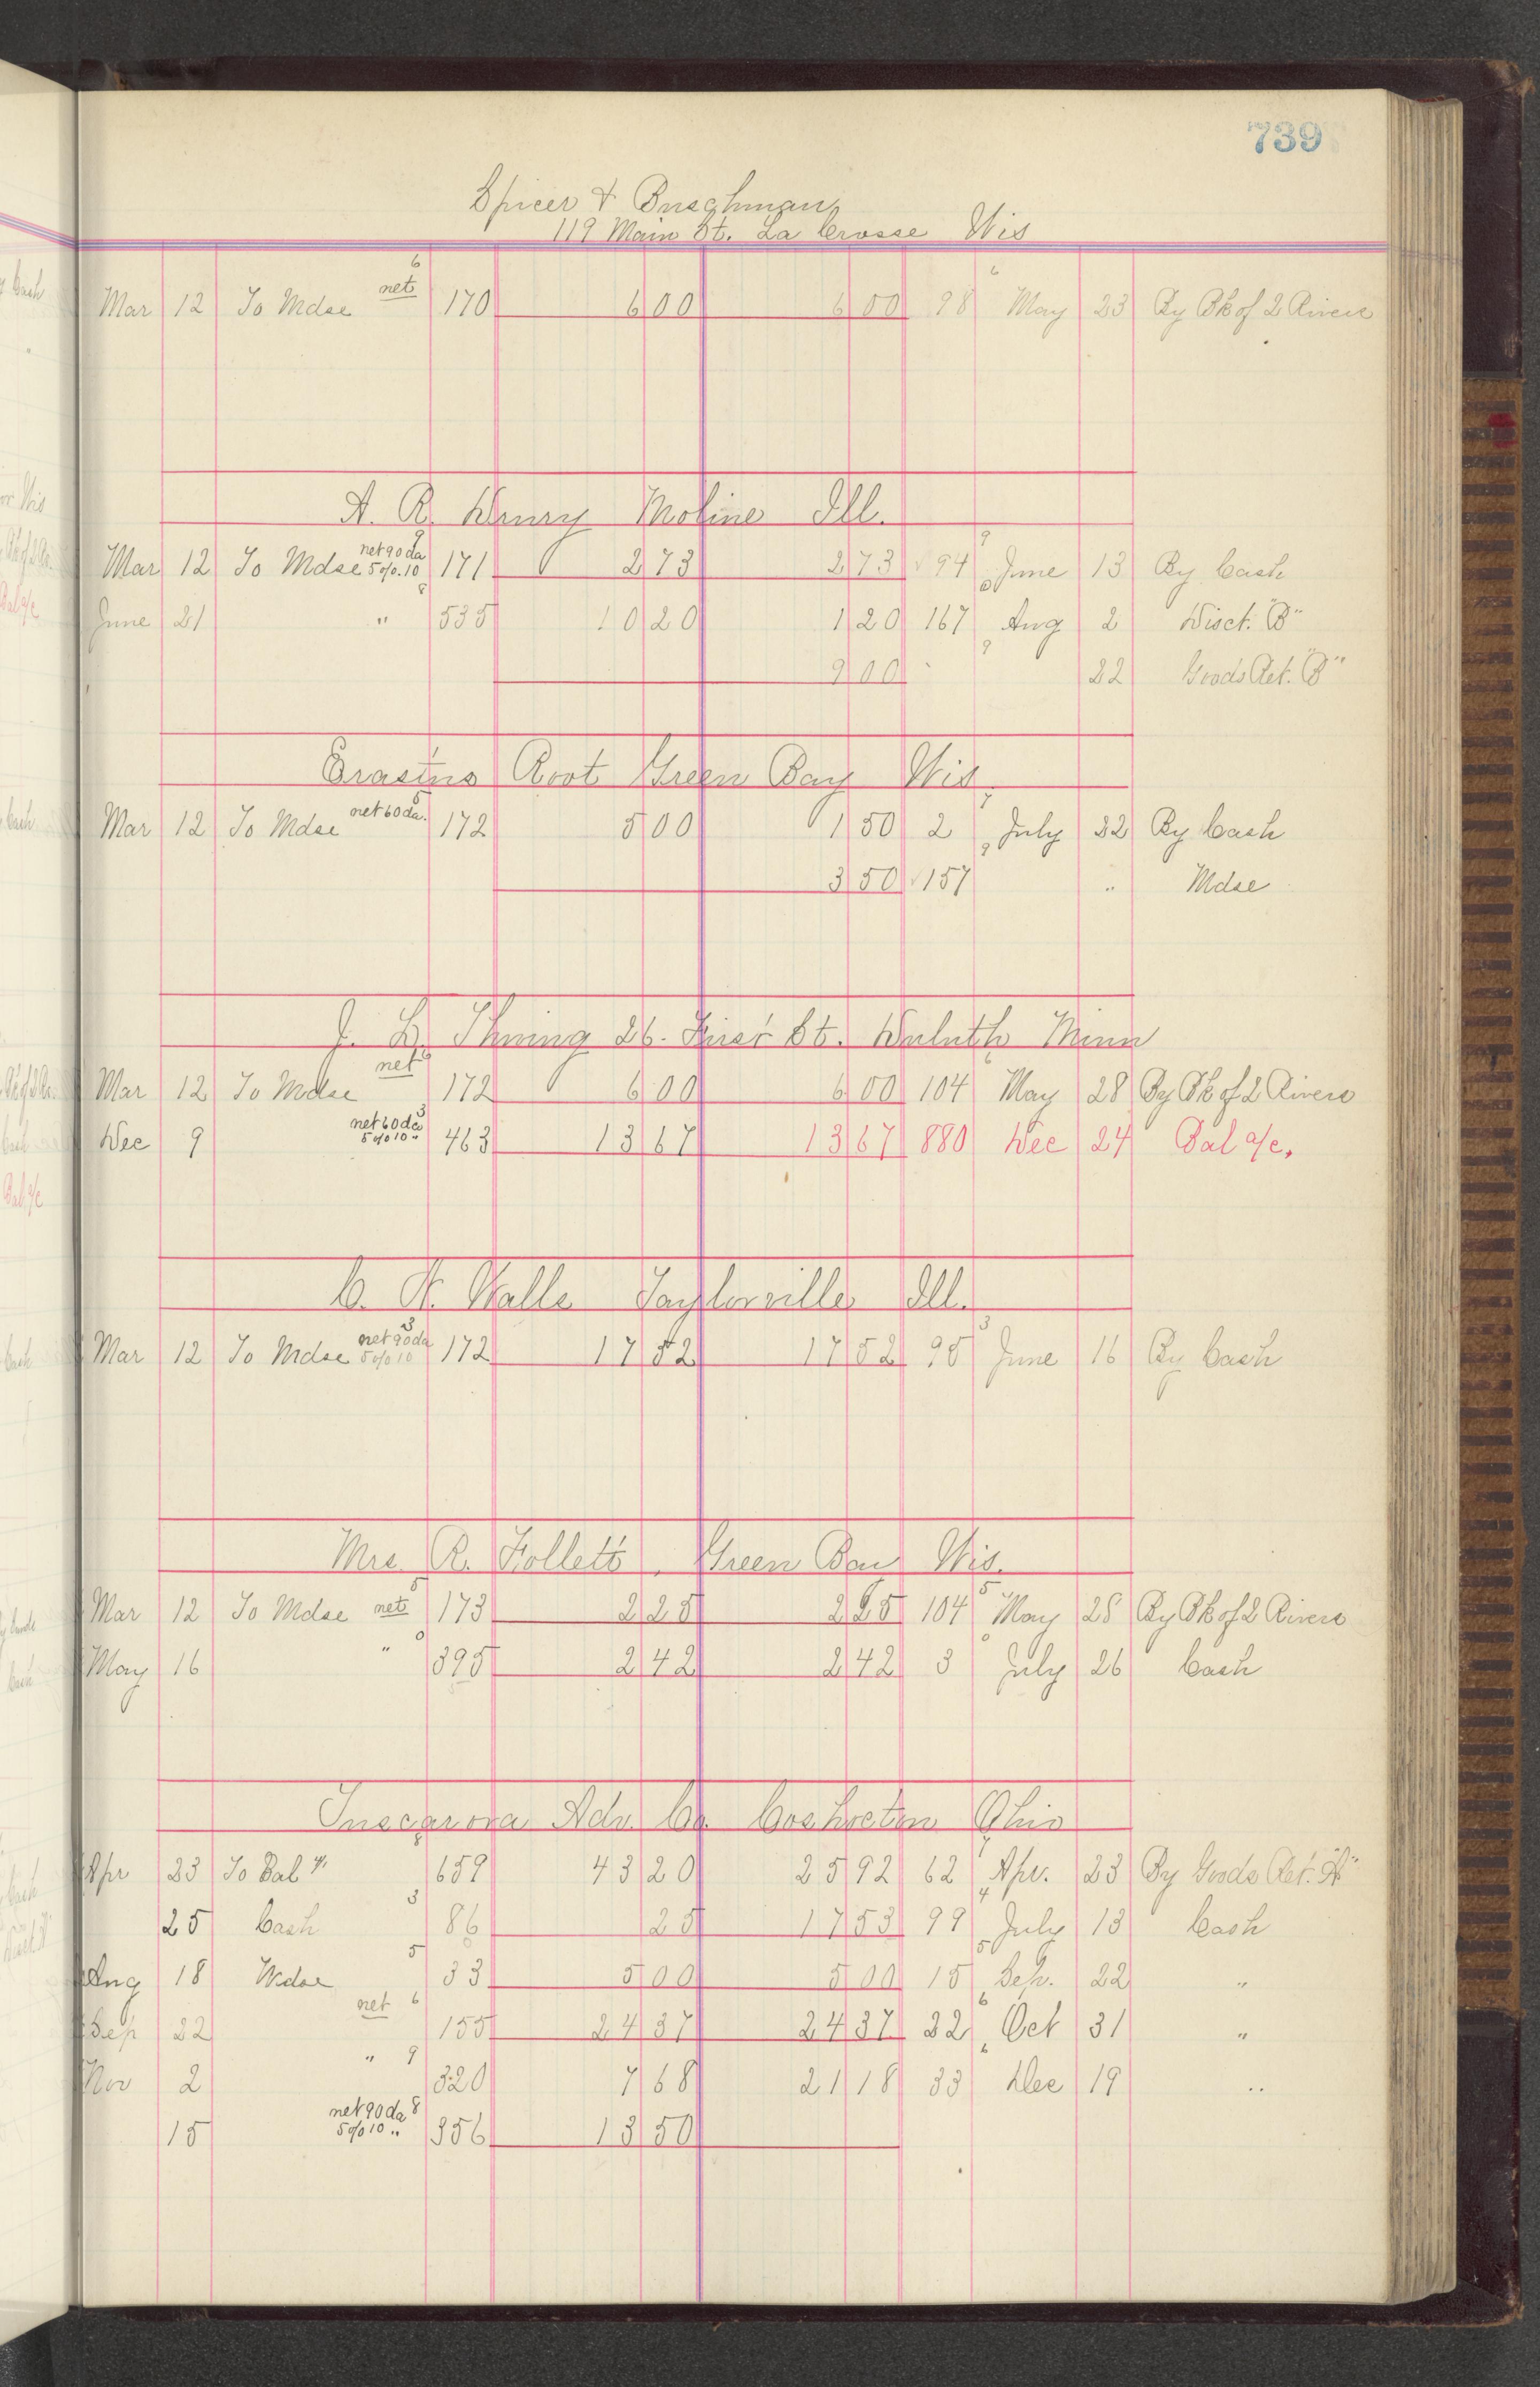 739
Spicer & Buschman
119 Main St. La Crosse Wis
Mar 12 To Mdse net 6 170 6 00 6 00 98 6 May 23 By Bk of 2 Rivers
A. R. Henry Moline Ill.
Mar 12 To Mdse net 90 da 5 o/o. 10 9 171 2 73 2 73 94 9 June 13 By Cash
June 21 " 8 535 10 20 1 20 167 0 Aug 2 Disct. "B"
9 00 " 9 22 Goods Ret. "B"
Erastus Root Green Bay Wis
Mar 12 To Mdse net 60 da. 5 172 5 00 1 50 2 7 July 22 By Cash
3 50 157 9 " Mdse
J. D. Thuing 26. First St. Duluth Minn
Mar 12 To Mdse net 6 172 6 00 6 00 104 6 May 28 By Bk of 2 Rivers
Dec 9 net 60 da 5 o/o 10 " 3 463 13 67 13 67 880 Dec 24 Bal a/c.
C. H. Walls Taylorville Ill.
Mar 12 To Mdse net 90 da 5 o/o 10 3 172 17 52 17 52 95 3 June 16 By Cash
Mrs. R. Follett, Green Bay Wis.
Mar 12 To Mdse net 5 173 2 25 2 25 104 5 May 28 By Bk of 2 Rivers
May 16 " 0 395 2 42 2 42 3 0 July 26 Cash
Tuscarora Adv. Co. Coshocton Ohio
Apr 23 To Bal 8 659 43 20 25 92 62 7 Apr. 23 By Goods Ret. "A"
25 Cash 3 86 25 17 53 99 4 July 13 Cash
Aug 18 Mdse 5 33 5 00 5 00 15 5 Sep. 22 "
Sep 22 net 6 155 24 37 24 37 22 6 Oct 31 "
Nov 2 " 9 320 7 68 21 18 33 6 Dec 19 "
15 net 90 da 5 o/o 10 " 8 356 13 50